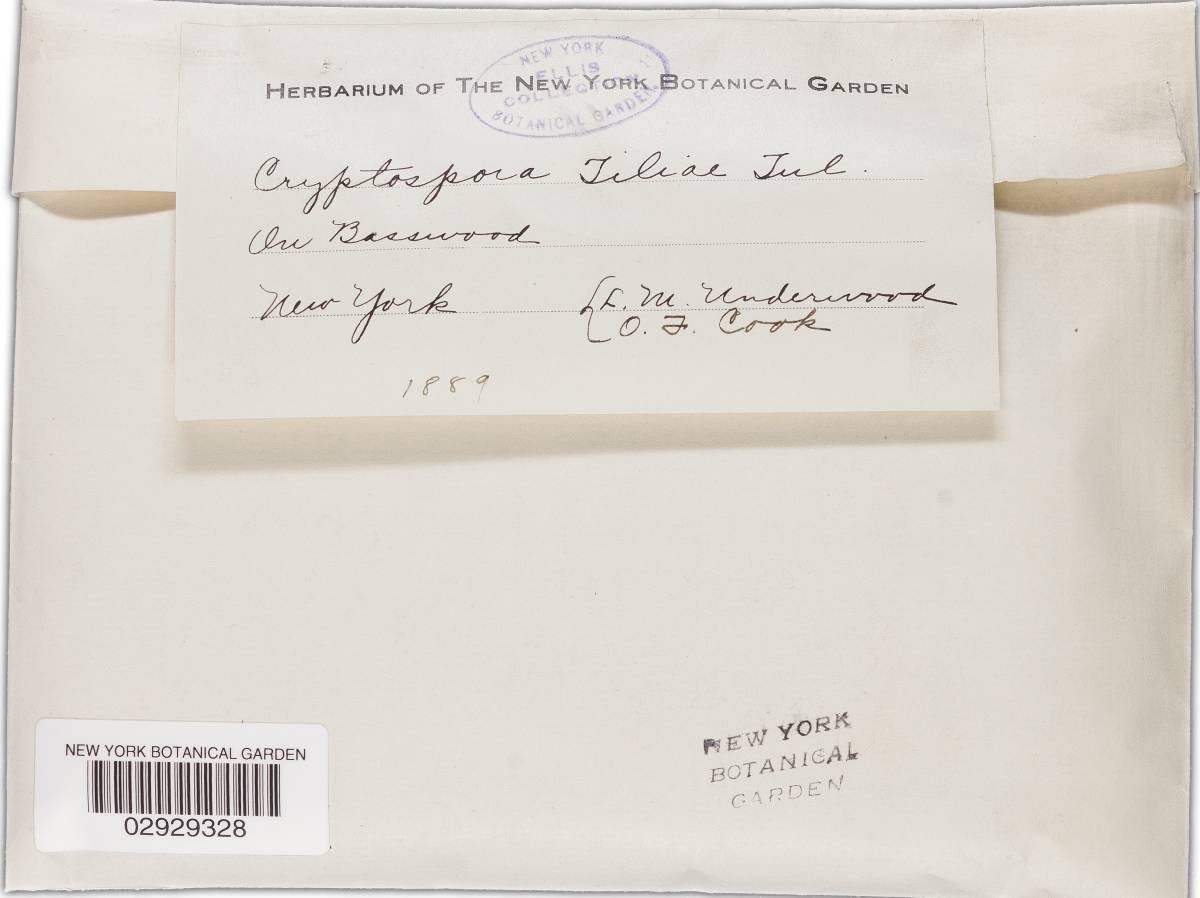 NEW YORK
ELLIS
COLLECTION
BOTANICAL GARDEN
HERBARIUM OF THE NEW YORK BOTANICAL GARDEN
Cryptospora Tiliae Tul.
On Basswood
New York
L. M. Underwood
O. F. Cook
1889
NEW YORK
BOTANICAL
GARDEN
NEW YORK BOTANICAL GARDEN
02929328